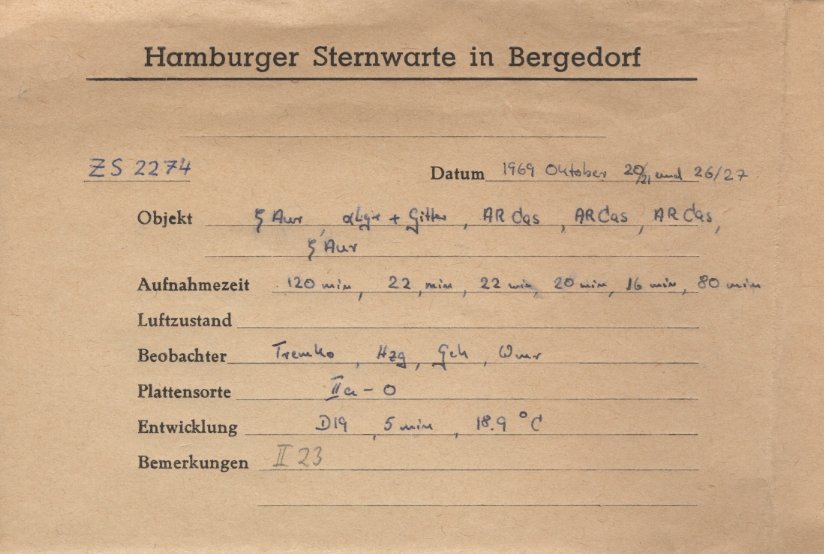 Hamburger Sternwarte in Bergedorf
ZS 2274
Datum 1969 Oktober 20/21 und 26/27
Objekt ζ Aur, α Lyr + Gitter, AR Cas, AR Cas, AR Cas,
ζ Aur
Aufnahmezeit 120 min, 22 min, 22 min, 20 min, 16 min, 80 min
Luftzustand
Beobachter Tremko, Hzg, Geh, Wmr
Plattensorte IIa-O
Entwicklung D19, 5 min, 18.9 °C
Bemerkungen II 23